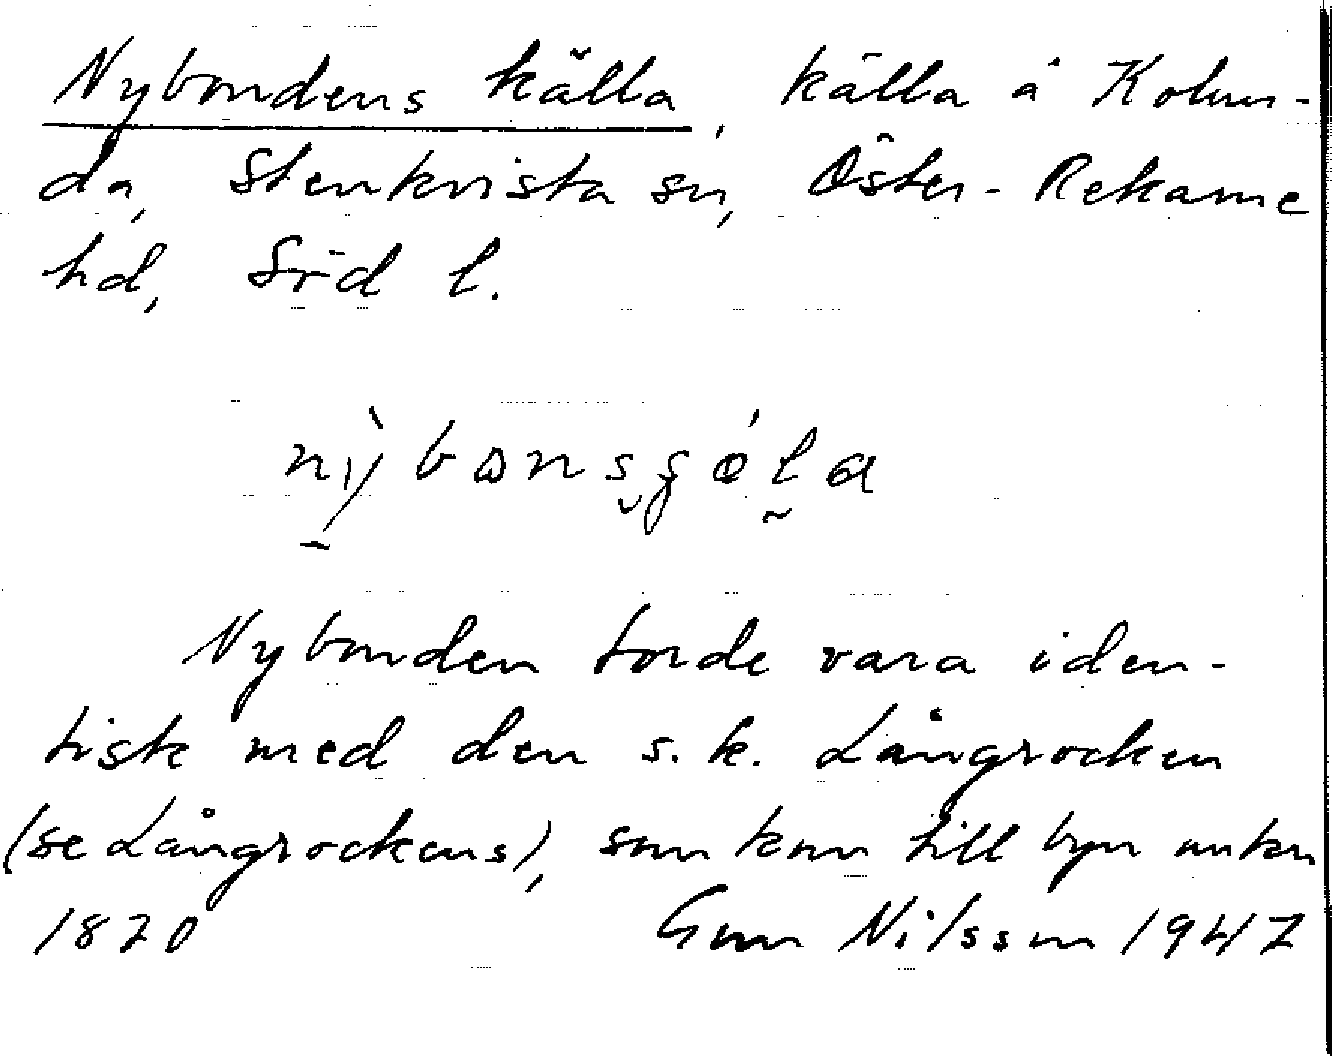 Nybondens källa, källa å Kolun-
da, Stenkvista sn, Öster-Rekarne
hd, Söd l.
Nybonden torde vara iden-
tisk med den s. k. Långrocken
(se Långrockens), som kom till byn omkr
1820 Gun Nilsson 1947